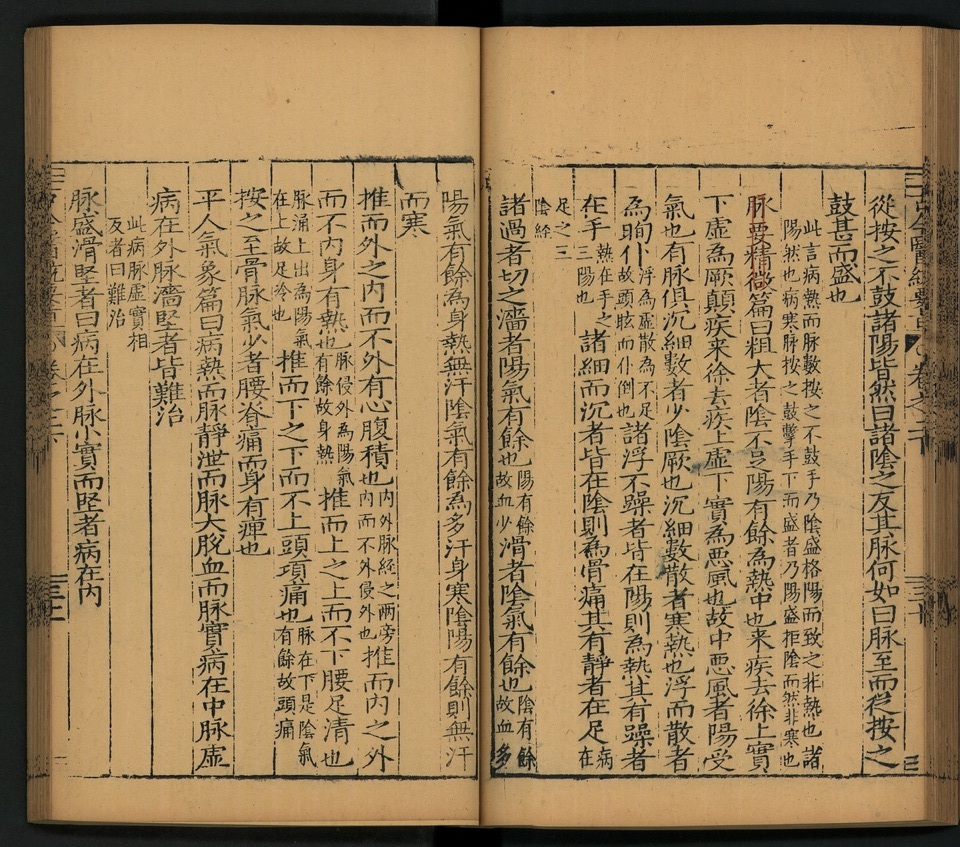 從按之不鼓諸陽皆然曰諸陰之反其脉何如曰脉至而從按之
鼓甚而盛也
此言病熱而脉數按之不鼓手乃陰盛格陽而致之非熱也諸
陽然也病寒脉按之鼓擊手下而盛者乃陽盛拒陰而然非寒也
脉要精微篇曰粗大者陰不足陽有餘為熱中也来疾去徐上實
下虛為厥顛疾来徐去疾上虛下實為惡風也故中惡風者陽受
氣也有脉俱沉細數者少陰厥也沉細數散者寒熱也浮而散者
為眴仆浮為虛散為不足故頭眩而仆倒也諸浮不躁者皆在陽則為熱其有躁者
在手熱在手之三陽也諸細而沉者皆在陰則為骨痛其有靜者在足病在
足之三陰経
諸過者切之濇者陽氣有餘也陽有餘故血少滑者陰氣有餘也陰有餘故血多
陽氣有餘為身熱無汗陰氣有餘為多汗身寒陰陽有餘則無汗
而寒
推而外之内而不外有心腹積也内外脉経之兩旁也内而不外侵外也推而内之外
而不内身有熱也脉侵外為陽氣有餘故身熱推而上之上而不下腰足清也
脉涌上出為陽氣在上故足冷也推而下之下而不上頭項痛也脉在下是陰氣有餘故頭痛
按之至骨脉氣少者腰脊痛而身有痺也
平人氣象篇曰病熱而脉靜泄而脉大脫血而脉實病在中脉虛
病在外脉濇堅者皆難治
此病脉虛實相
反者曰難治
脉盛滑堅者曰病在外脉小實而堅者病在内